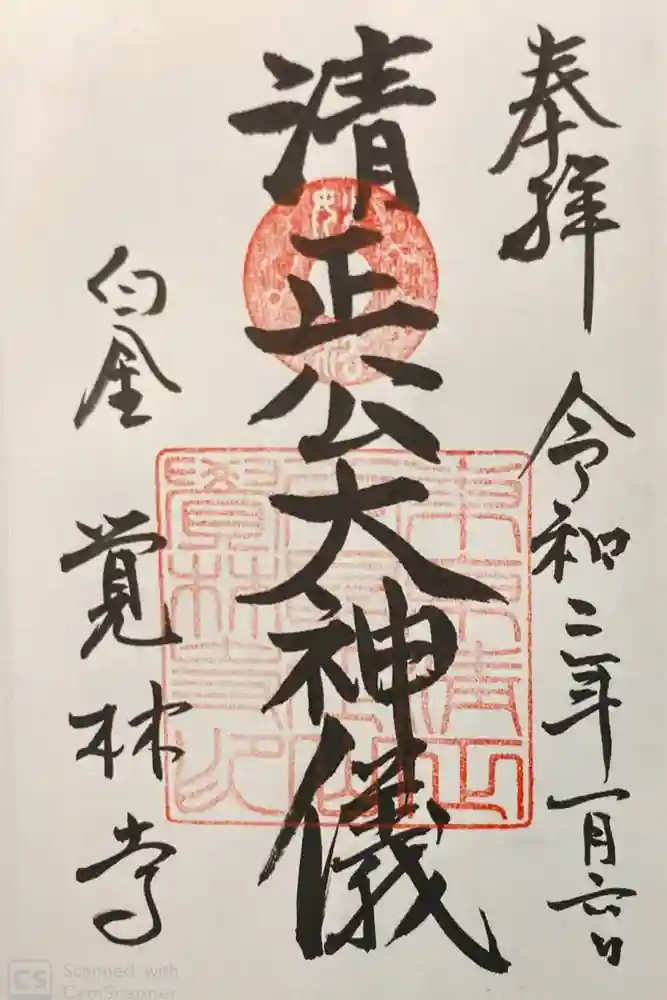 奉拝
令和二年一月六日
清正公大神儀
白金
覚林寺
CS Scanned with
CamScanner